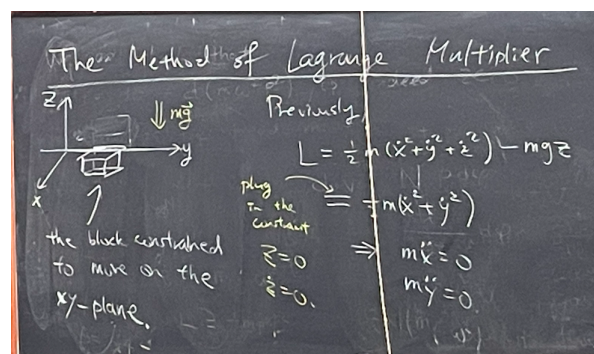 The Method of Lagrange Multiplier
z
mg⃗
y
x
the block constrained
to move on the
xy-plane.
Previously,
L = ½ m (ẋ² + ẏ² + ż²) - mgz
plug
in the
constraint
z = 0
ż = 0.
= ½ m (ẋ² + ẏ²)
⇒ mẍ = 0
mÿ = 0.